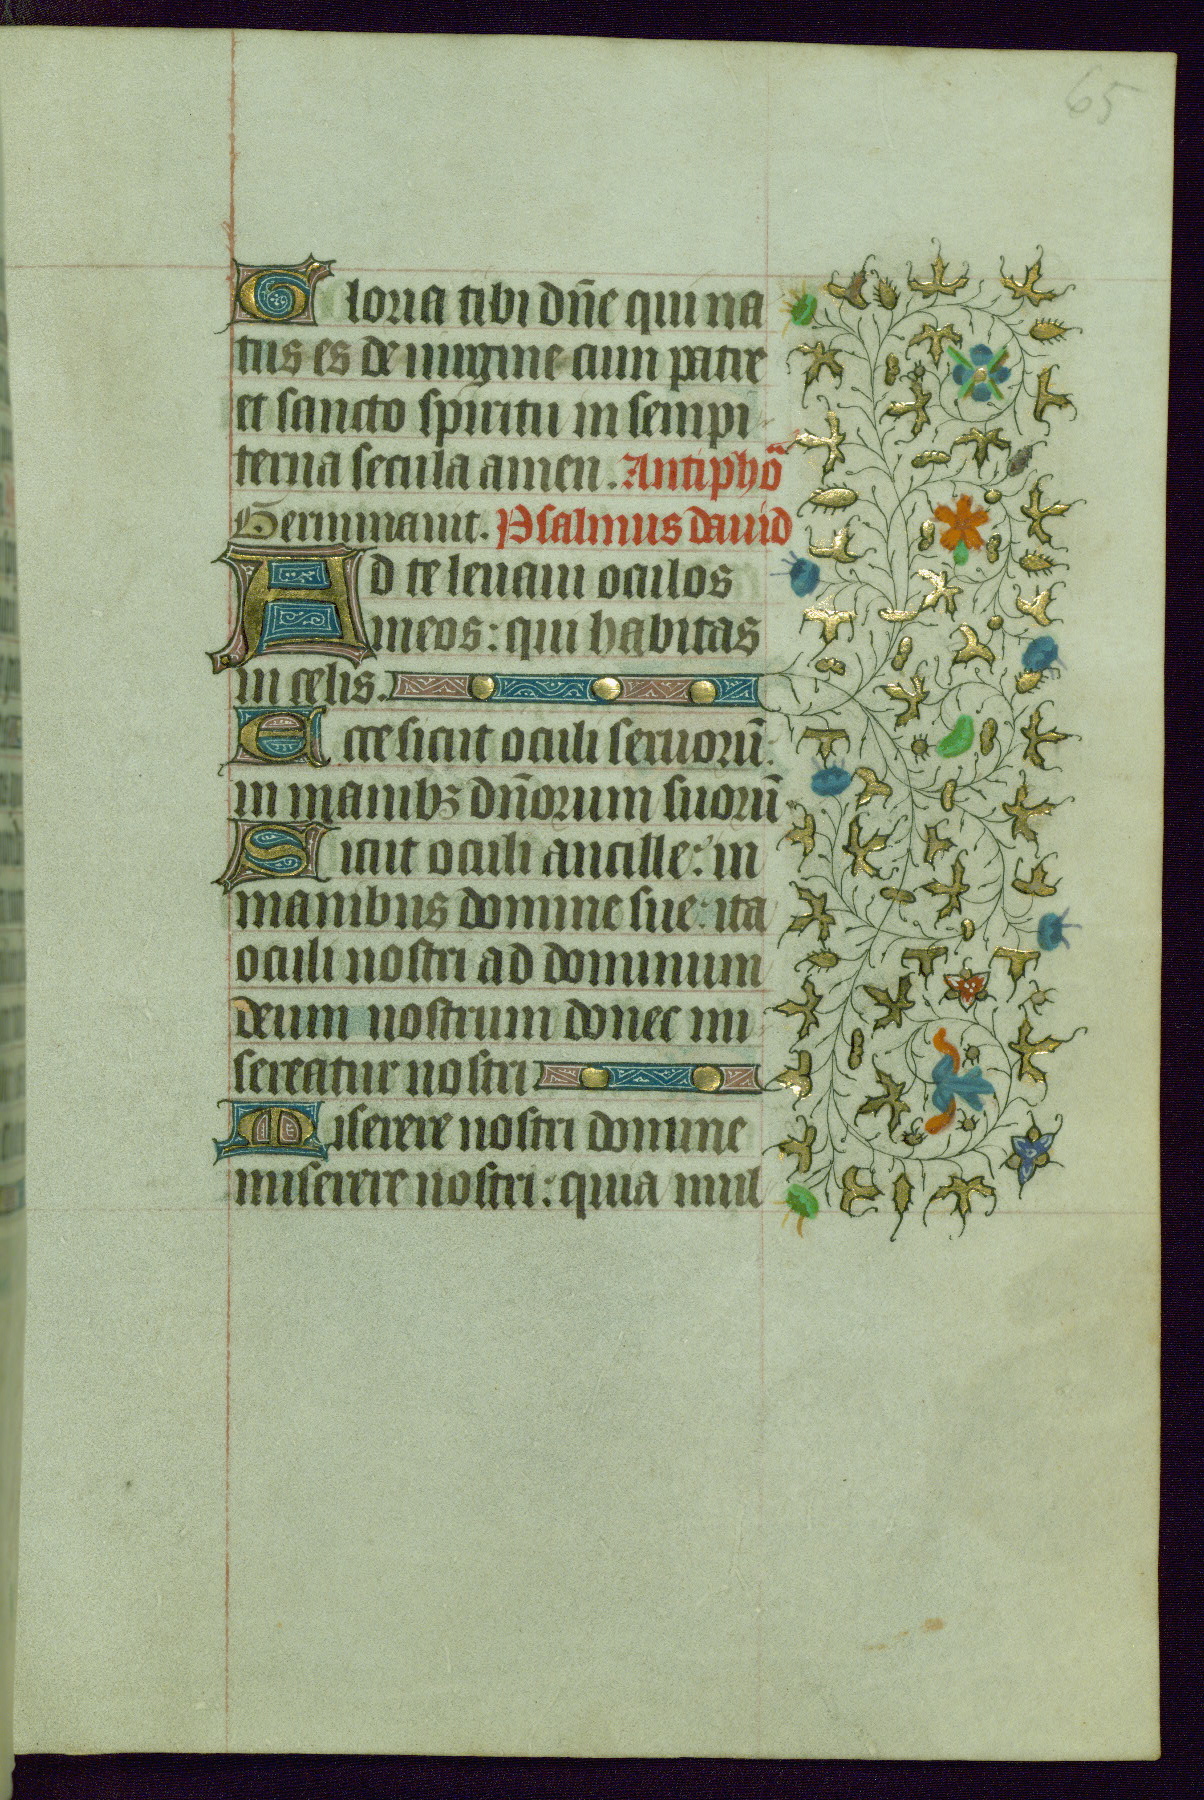 65
Gloria tibi dn̄e qui na
tus es de uirgine cum patre
et sancto spiritu in sempi
terna secula amen. Antiphō
Germinauit. Psalmus dauid
Ad te leuaui oculos
meos: qui habitas
in celis.
Ecce sicut oculi seruorū:
in manibꝫ dn̄orum suorū
Sicut oculi ancille: in
manibus domine sue: ita
oculi nostri ad dominum
deum nostrum donec mi
sereatur nostri
Miserere nostri domine
miserere nostri: quia mul